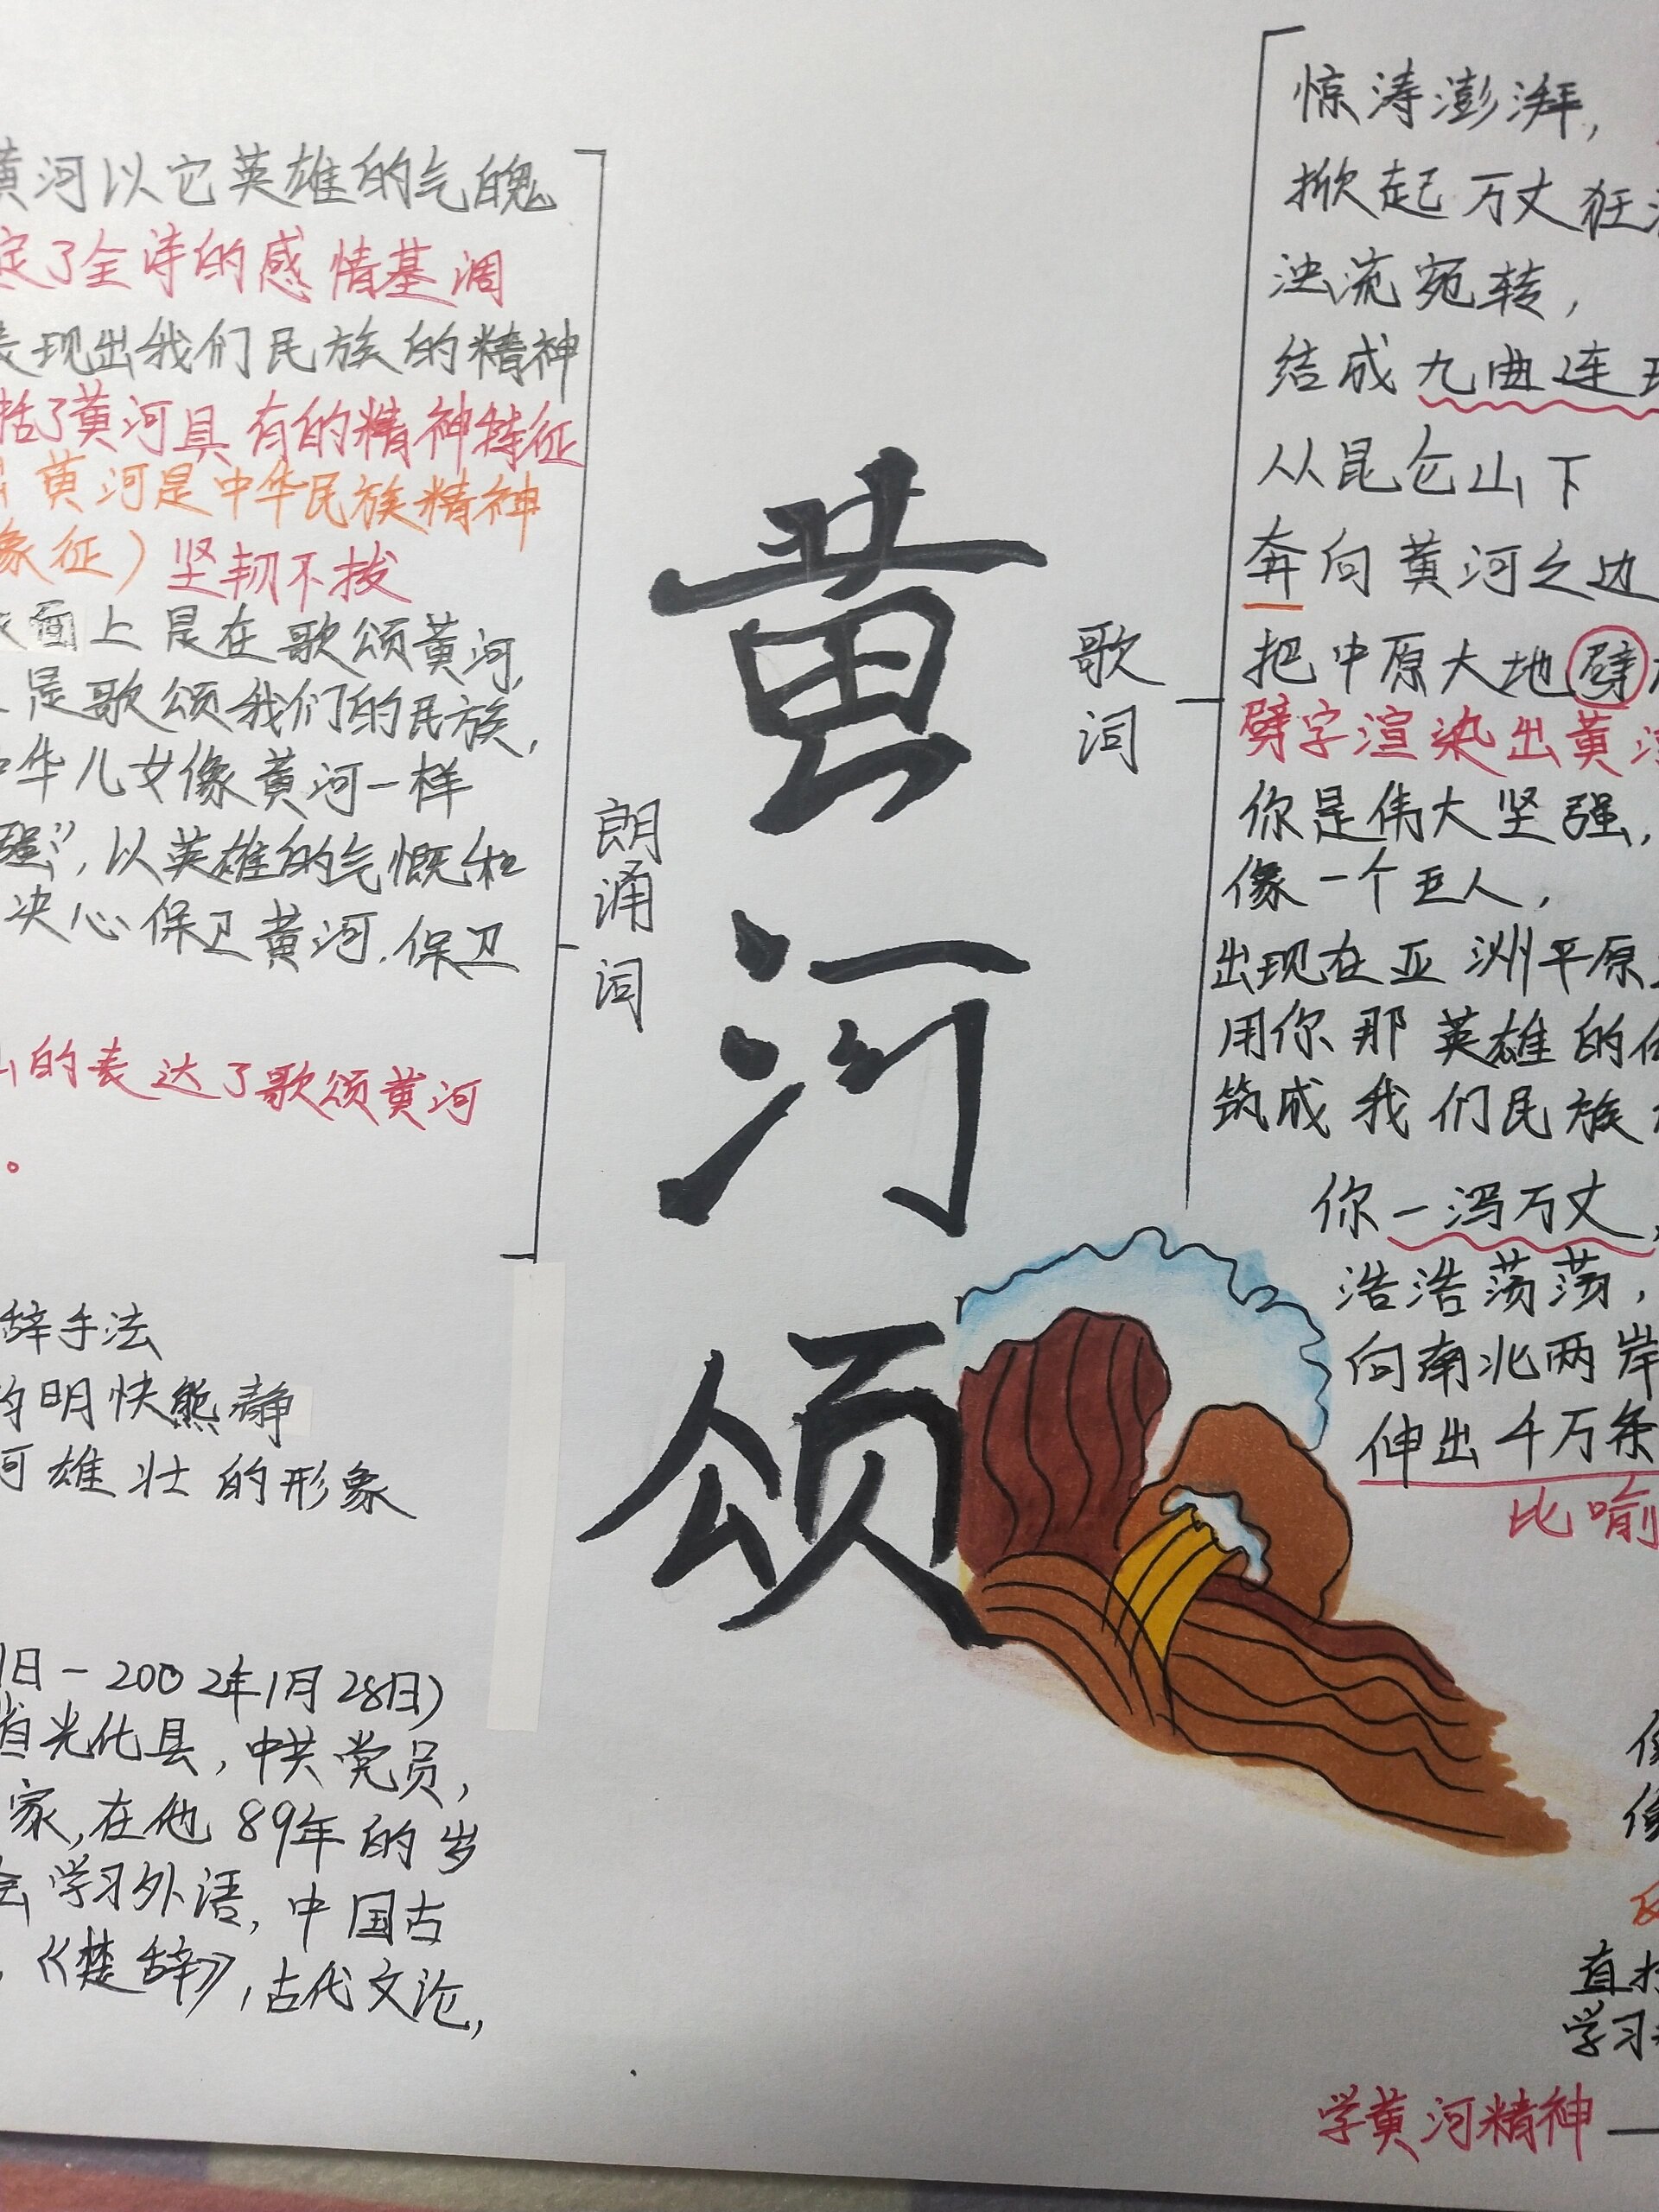 黄河以它英雄的气魄
定了全诗的感情基调
表现出我们民族的精神
括了黄河具有的精神特征
黄河是中华民族精神
象征）坚韧不拔
面上是在歌颂黄河,
是歌颂我们的民族,
中华儿女像黄河一样
强”,以英雄的气慨和
决心保卫黄河.保卫
的表达了歌颂黄河
。
朗涌词
辞手法
的明快熊静
河雄壮的形象
1日-2002年1月28日)
省光化县,中共党员,
家,在他89年的岁
学习外语,中国古
《楚辞》,古代文论,
黄河颂
歌词
惊涛澎湃,
掀起万丈狂
浊流宛转,
结成九曲连
从昆仑山下
奔向黄河之边
把中原大地劈
劈字渲染出黄河
你是伟大坚强,
像一个巨人,
出现在亚洲平原
用你那英雄的
筑成我们民族
你一泻万丈,
浩浩荡荡,
向南北两岸
伸出千万条
比喻
像
像
直接
学习
学黄河精神